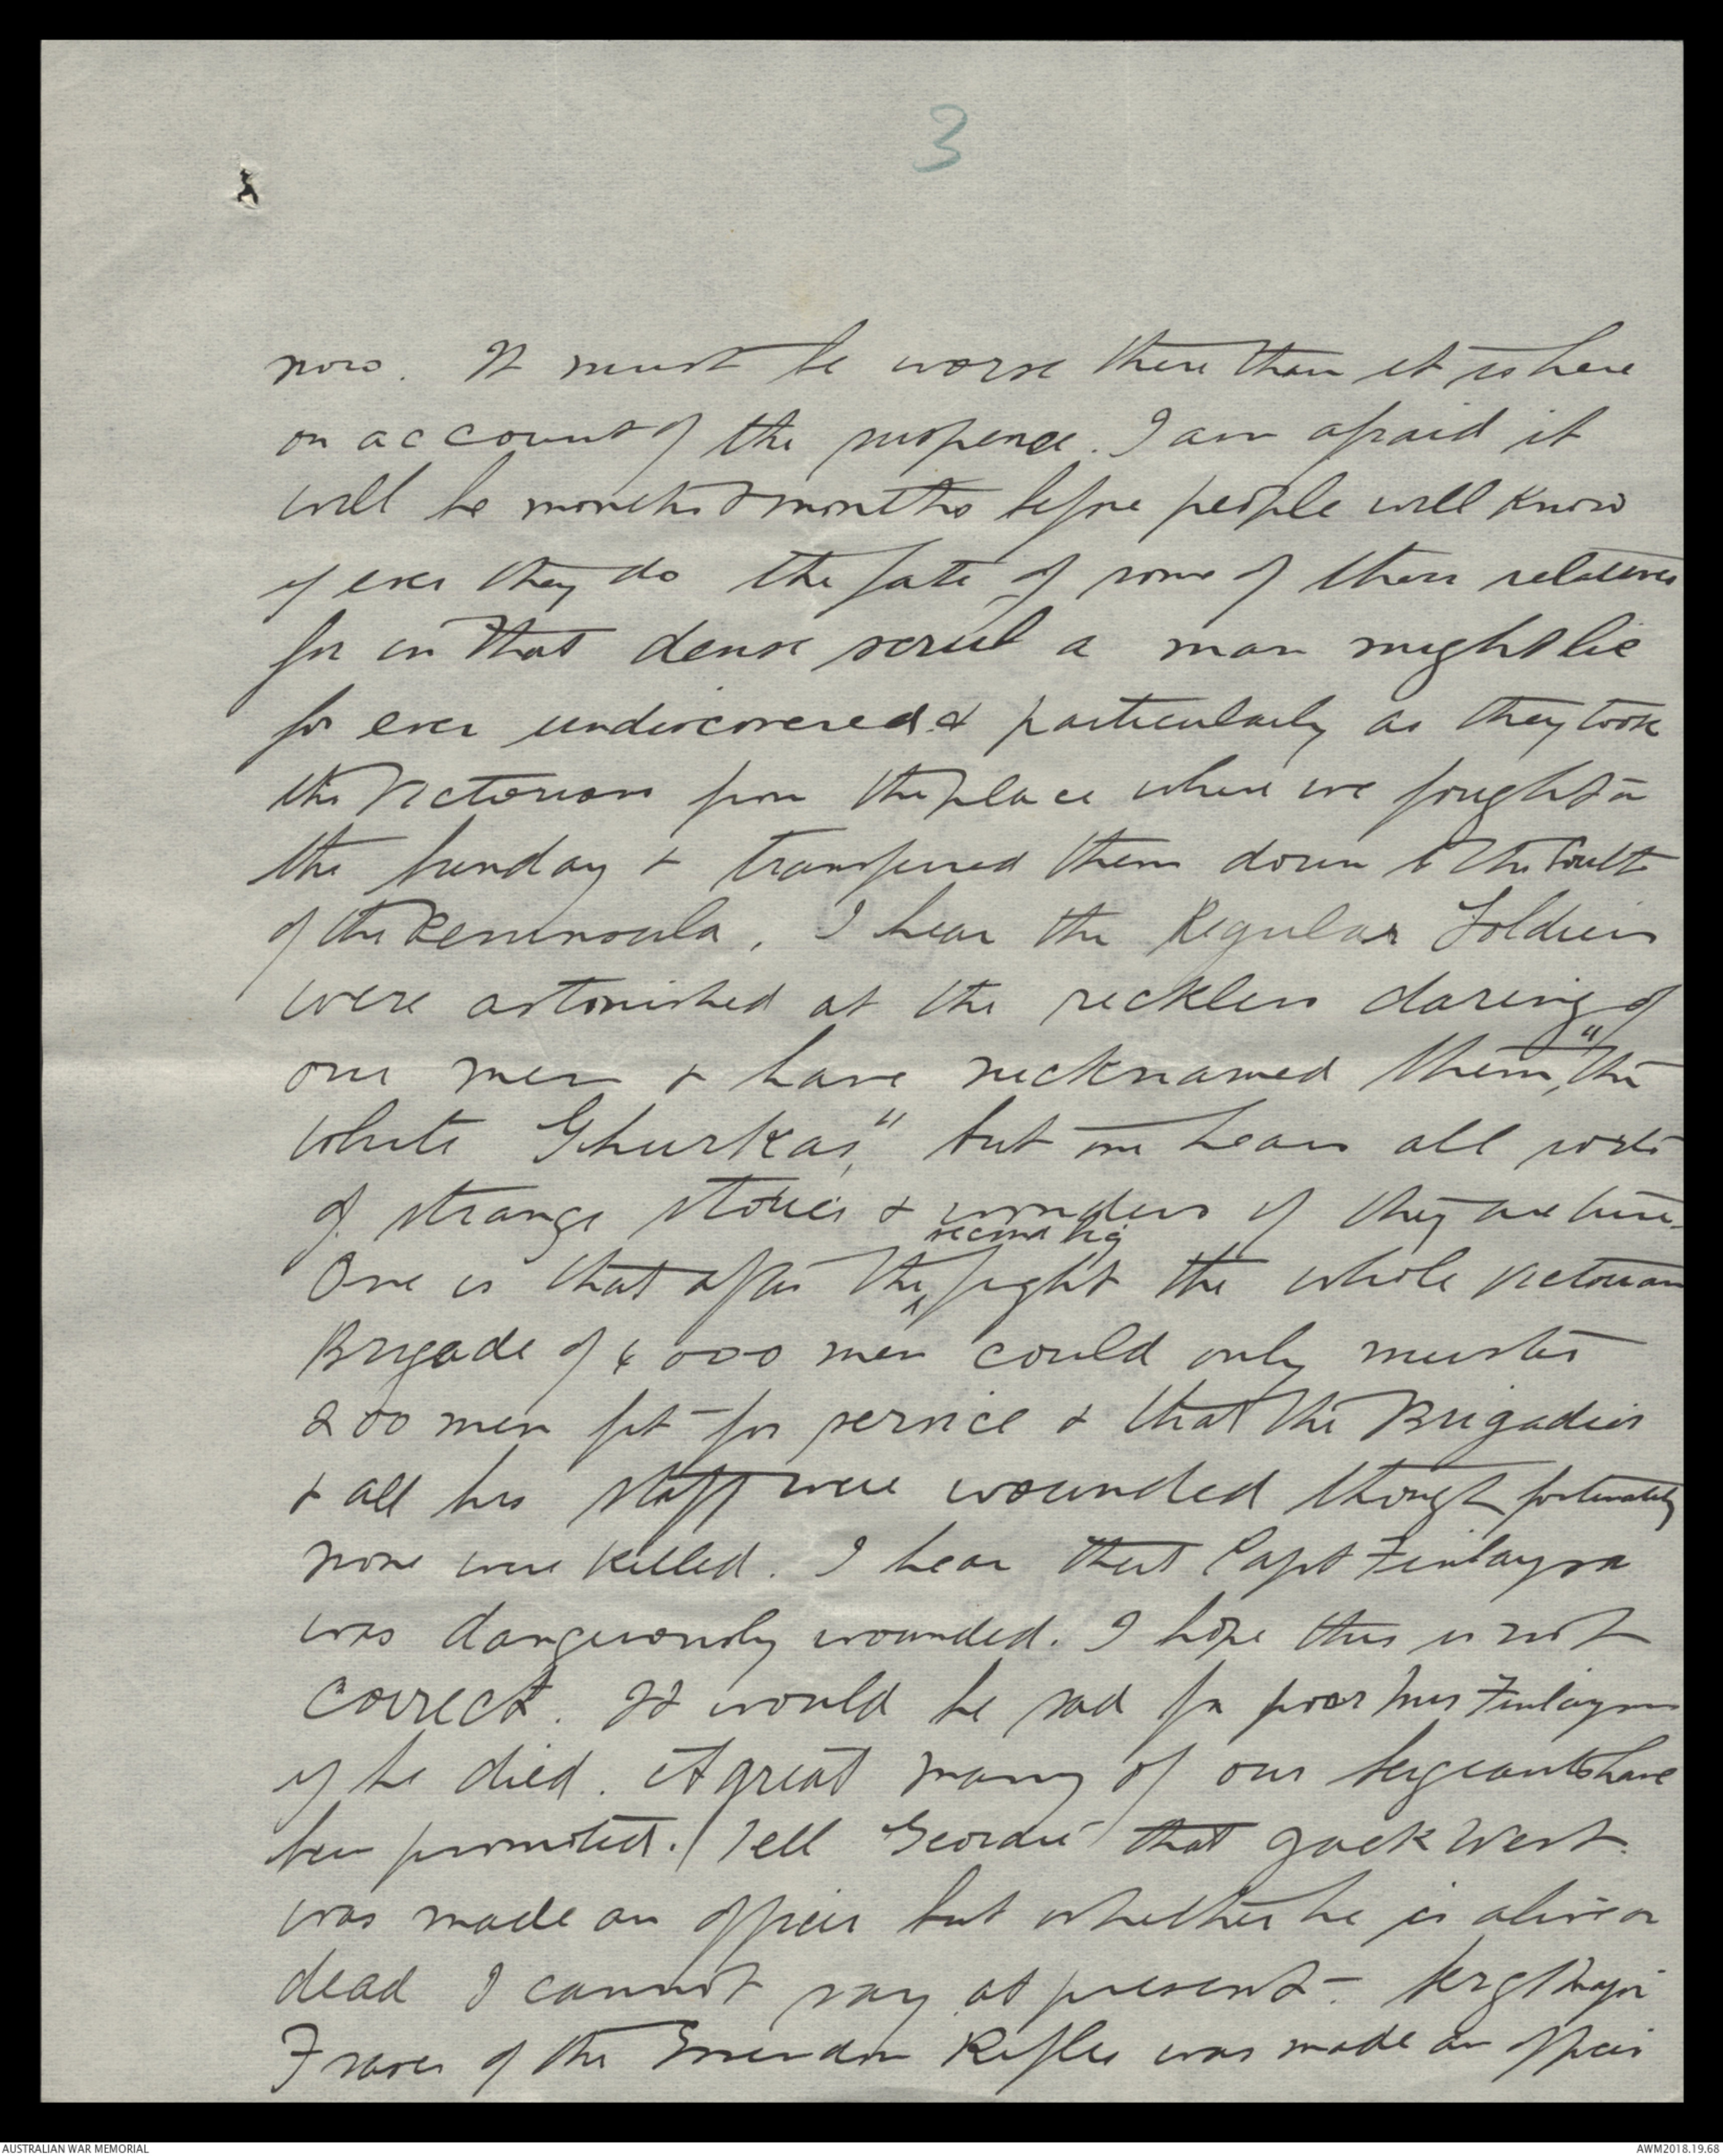 3
now. It must be worse there than it is here
on account of the suspence. I am afraid it
will be months & months before people will know
if ever they do the fate of some of their relatives
for in that dense scrub a man might lie
for ever undiscovered & particularly as they took
the Victorians from the place where we fought on
the Sunday & transferred them down to the South
of the Peninsula. I hear the Regular Soldiers
were astonished at the reckless daring of
our men & have nicknamed them, "the
white Ghurkas," but one hears all sorts
of strange stories & wonders if they are true.
second big
One is that after the fight the whole Victorian
Brigade of 4000 men could only muster
200 men fit for service & that the Brigadier
& all his staff were wounded though fortunately
none were killed. I hear that Capt Finlayson
was dangerously wounded. I hope this is not
correct. It would be sad for poor Mrs Finlayson
if he died. A great many of our Sergeants have
been promoted. / Tell Geordie that Jack West
was made an officer but whether he is alive or
dead I cannot say at present - Sergt Major
Fraser of the Essendon Rifles was made an officer
AUSTRALIAN WAR MEMORIAL
AWM2018.19.68